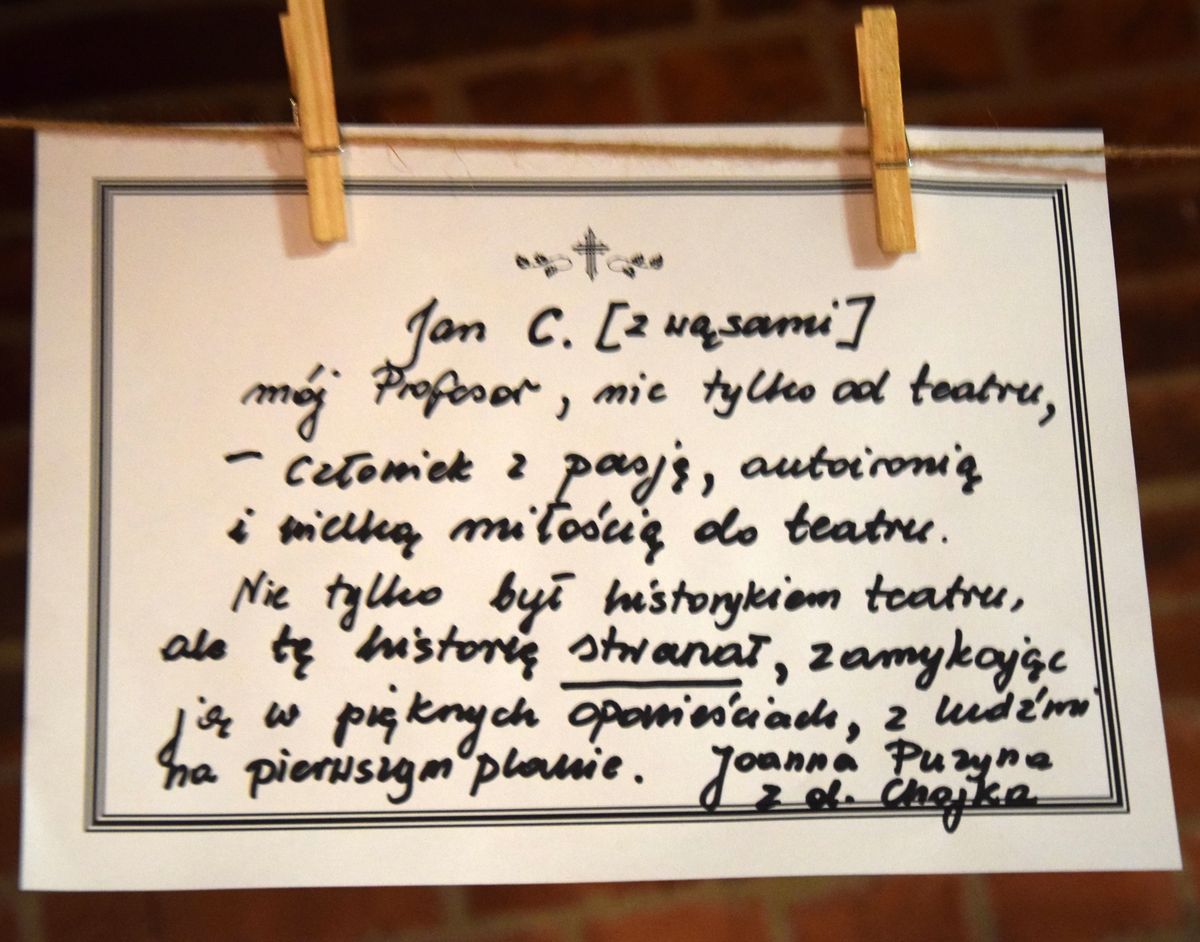 Jan C. [z wąsami]
mój Profesor, nie tylko od teatru,
– człowiek z pasją, autoironią
i wielką miłością do teatru.
Nie tylko był historykiem teatru,
ale tę historię stwarzał, zamykając
ją w pięknych opowieściach, z ludźmi
na pierwszym planie. Joanna Puzyna
z d. Chojka